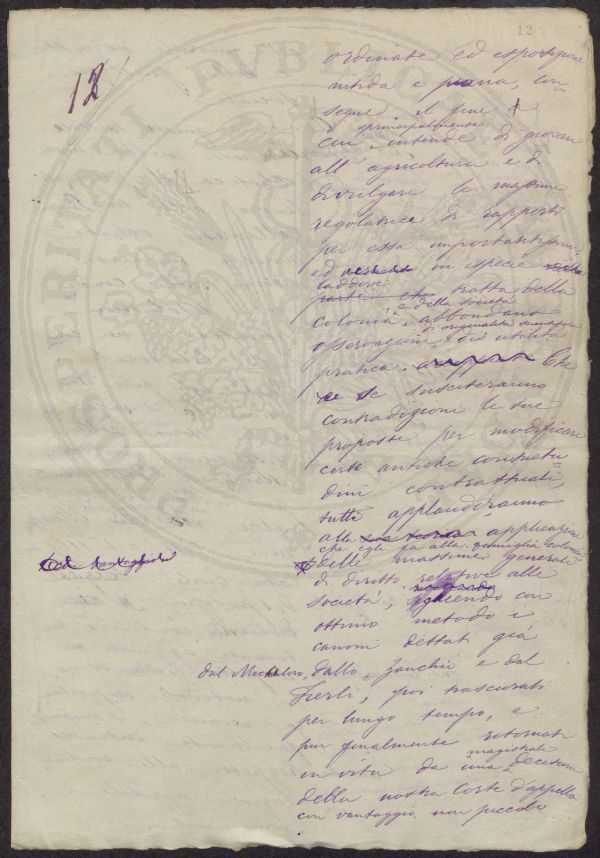 12
12
ordinate ed esposizione
nitida e piana, con
segue il fine a
principalmente
cui intende di giovare
all' agricoltura e di
divulgare le massime
regolatrici di rapporti
per essa importantissimi,
ed in especie
laddove
parte che tratta della
e della società
colonia, abbondano
d'originalità scientifica
osservazioni e di utilità
pratica. Che
se susciteranno
contradizioni le sue
proposte per modificare
certe antiche consuetu
dini contrattuali,
tutti applaudiranno
alla applicazione
che egli fa alla famiglia colonica
delle massime generali
di diritto relative alle
riguardo
società, seguendo con
ottimo metodo i
canoni dettati già
dal Michalori, dallo Zanchi e dal
Fierli, poi trascurati
per lungo tempo, e
pur finalmente ritornati
magistrale
in vita da una decisione
della nostra Corte d'appello
con vantaggio non piccolo